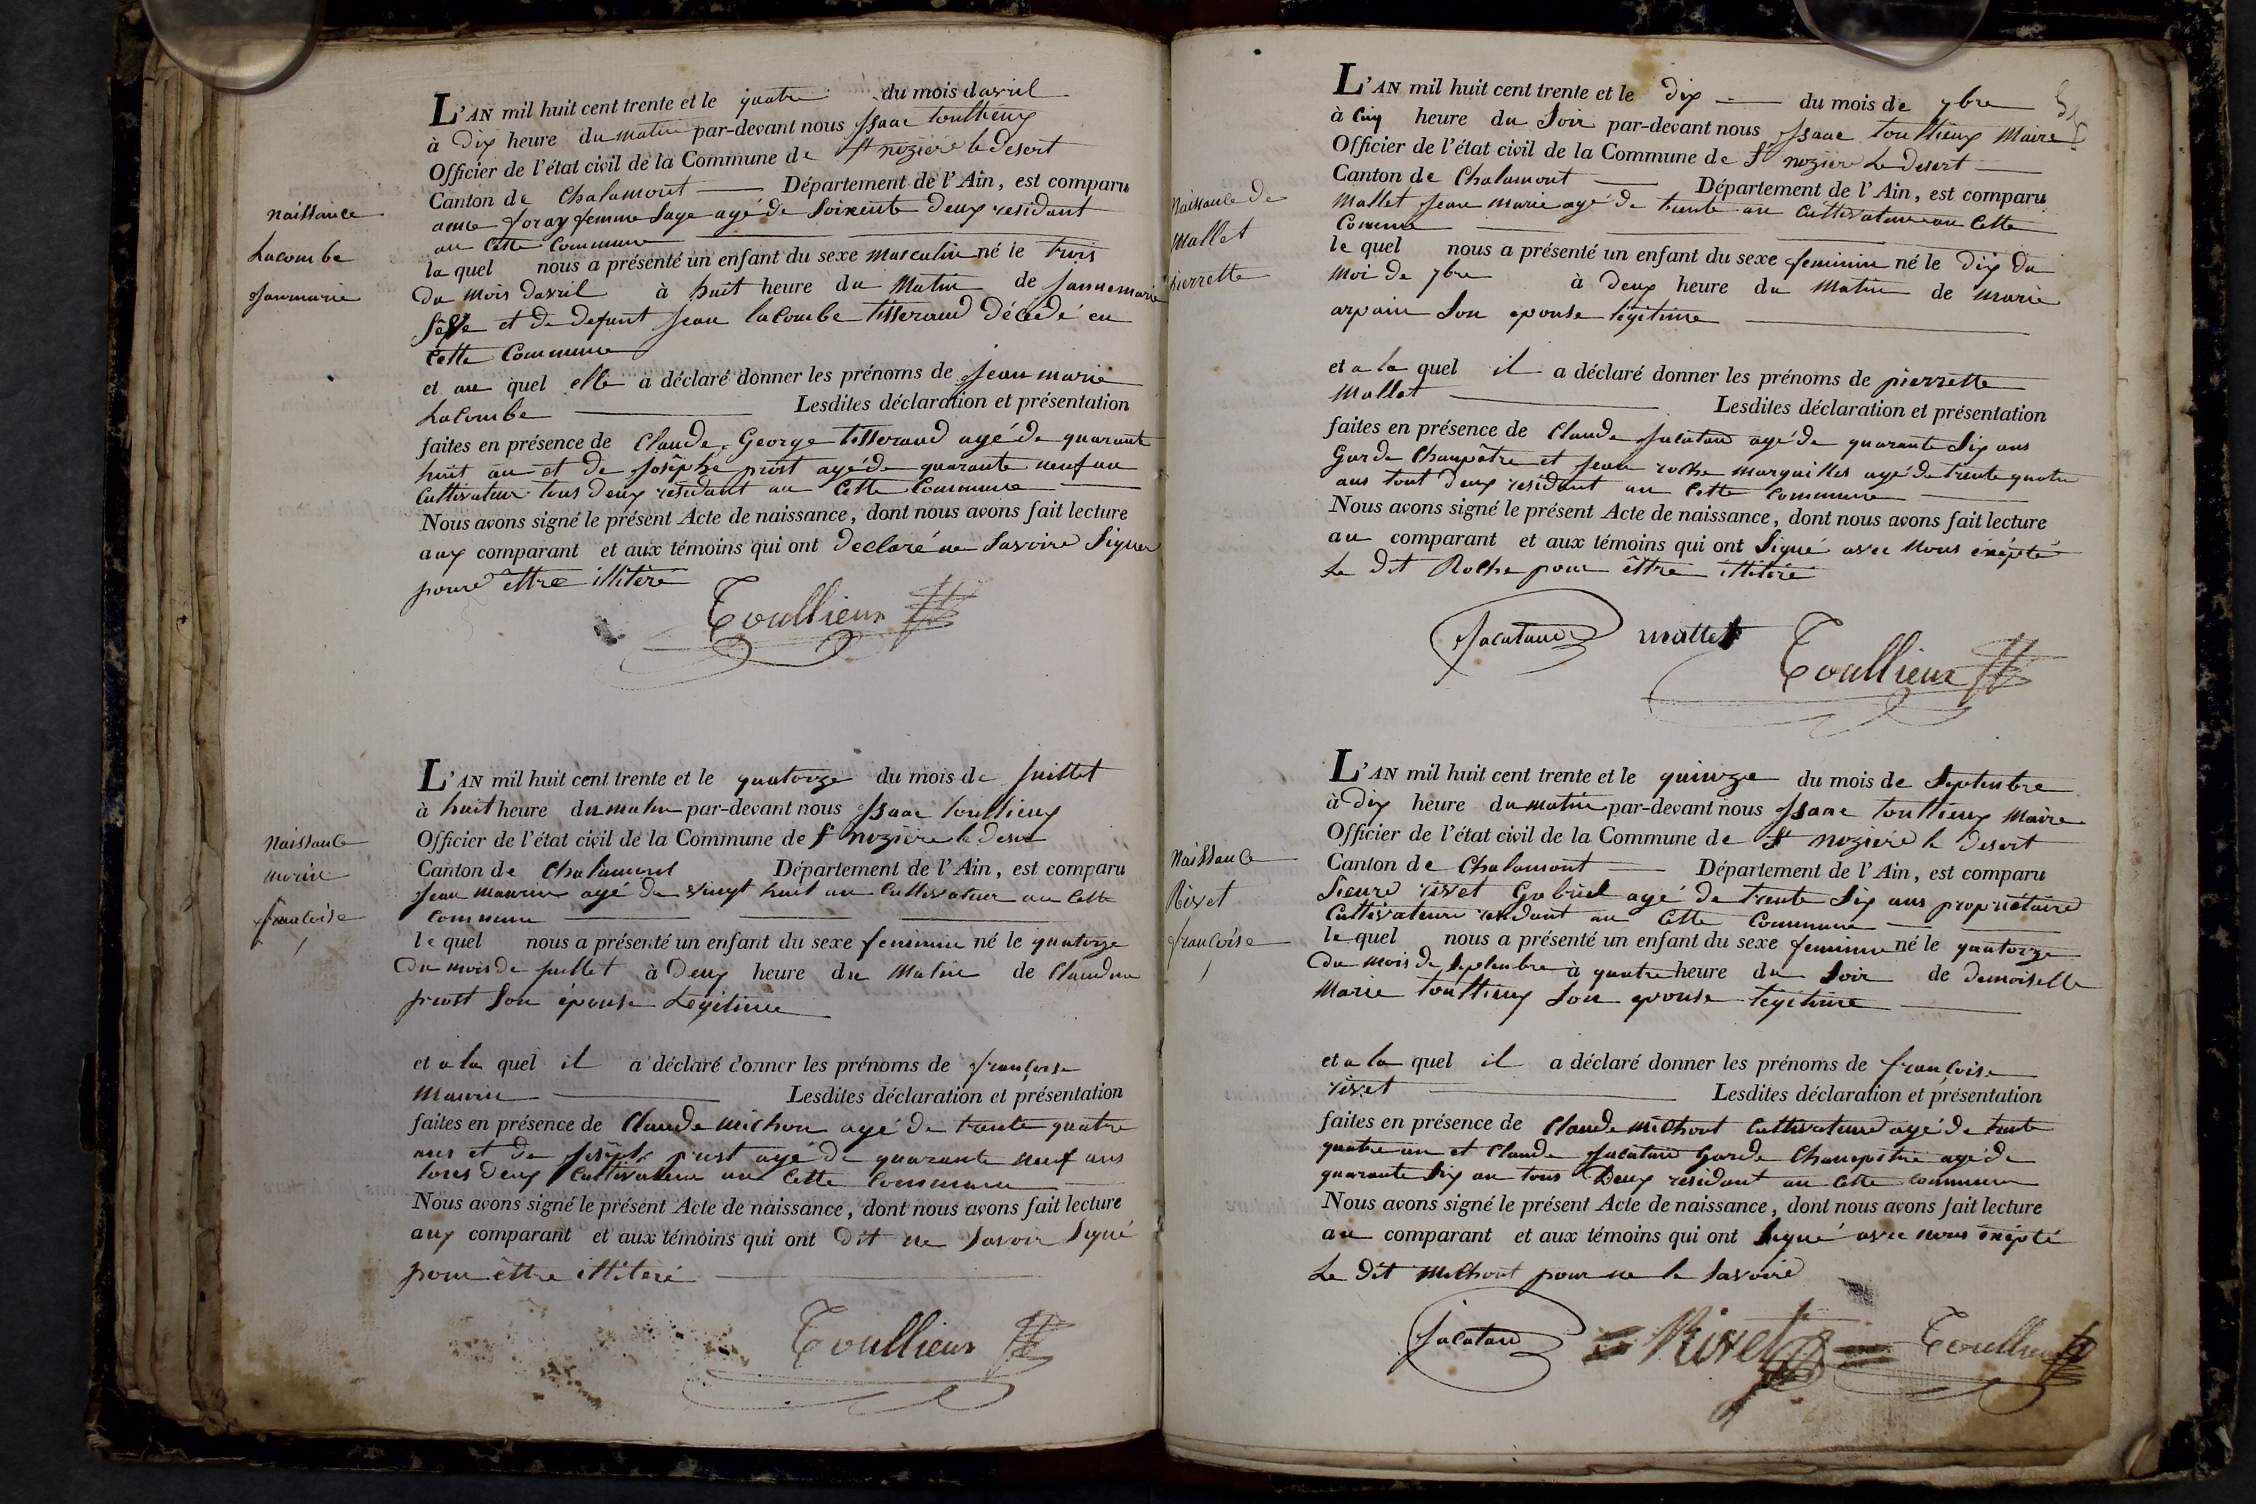 L'AN mil huit cent trente et le quatre du mois davril
à Dix heure du matin par-devant nous Isaac toullieux
Officier de l'état civil de la Commune de St nozière le desert
Canton de Chalamont Département de l'Ain, est comparu
anne foray femme Sage agé de Soixente deux residant
an cette commune
naissance
Lacombe
Janmarie
la quel nous a présenté un enfant du sexe masculin né le trois
Du mois Davril à huit heure du Matin de Jannemarie
et de defunt Jean lacombe tisserand Décédé en
Cette Commune
et au quel elle a déclaré donner les prénoms de Jean marie
Lacombe Lesdites déclaration et présentation
faites en présence de Claude George tisserand agé de quarante
huit an et de Josèphe prost agé de quarante neuf an
Cultivateur tous deux residant au Cette Commune
Nous avons signé le présent Acte de naissance, dont nous avons fait lecture
aux comparant et aux témoins qui ont declaré ne Savoire Signer
pour être illitéré
Toullieux
L'AN mil huit cent trente et le quatorze du mois de juillet
à huit heure du matin par-devant nous Isaac toullieux
Officier de l'état civil de la Commune de St nozière le desert
Canton de Chalamont Département de l'Ain, est comparu
Jean maurin agé de vingt huit an Cultivateur au Cette
commune
Naissance
morin
francoise
le quel nous a présenté un enfant du sexe feminin né le quatorze
du mois de juillet à Deux heure du Matin de Claudine
prost Son épouse Legitime
et a la quel il a déclaré donner les prénoms de françoise
Maurin Lesdites déclaration et présentation
faites en présence de Claude michon agé de trante quatre
ans et de Josèph prost agé de quarante neuf ans
tous deux Cultivateur au Cette Commune
Nous avons signé le présent Acte de naissance, dont nous avons fait lecture
aux comparant et aux témoins qui ont dit ne Savoir Signé
pour être illiteré
Toullieux
L'AN mil huit cent trente et le dix du mois de 7bre
à Cinq heure du Soir par-devant nous Isaac toullieux Maire
Officier de l'état civil de la Commune de St nozière Le desert
Canton de Chalamont Département de l'Ain, est comparu
Mallet Jean marie agé de trente an Cultivateur au Cette
Commune
Naissance de
Mallet
pierrette
le quel nous a présenté un enfant du sexe feminin né le Dix du
Moi de 7bre à Deux heure du Matin de Marie
arpain Son épouse légitime
et a la quel il a déclaré donner les prénoms de pierrette
Mallet Lesdites déclaration et présentation
faites en présence de Claude Jacatard agé de quarante Six ans
Garde Champêtre et Jean roche marguillés agé de trente quatre
ans tout deux residant au Cette commune
Nous avons signé le présent Acte de naissance, dont nous avons fait lecture
au comparant et aux témoins qui ont Signé avec Nous éxépté
Le Dit Roche pour être illitéré
Jacatard mallet Toullieux
L'AN mil huit cent trente et le quinze du mois de Septenbre
à Dix heure du matin par-devant nous Isaac toullieux Maire
Officier de l'état civil de la Commune de St nozière le desert
Canton de Chalamont Département de l'Ain, est comparu
Sieure rivet Gabriel agé de trente Six ans propriétaire
Cultivateur residant au Cette Commune
Naissance
Rivet
francoise
le quel nous a présenté un enfant du sexe feminin né le quatorze
du mois de Septenbre à quatre heure du Soir de demoiselle
Marie toullieux Son epouse légitime
et a la quel il a déclaré donner les prénoms de françoise
rivet Lesdites déclaration et présentation
faites en présence de Claude michout Cultivateur agé de trente
quatre an et Claude Jacatard Garde Champêtre agé de
quarante Six an tous Deux residant au Cette commune
Nous avons signé le présent Acte de naissance, dont nous avons fait lecture
au comparant et aux témoins qui ont Signé avec nous éxépté
Le Dit Michout pour ne le Savoire
Jacatard Rivet Toullieux